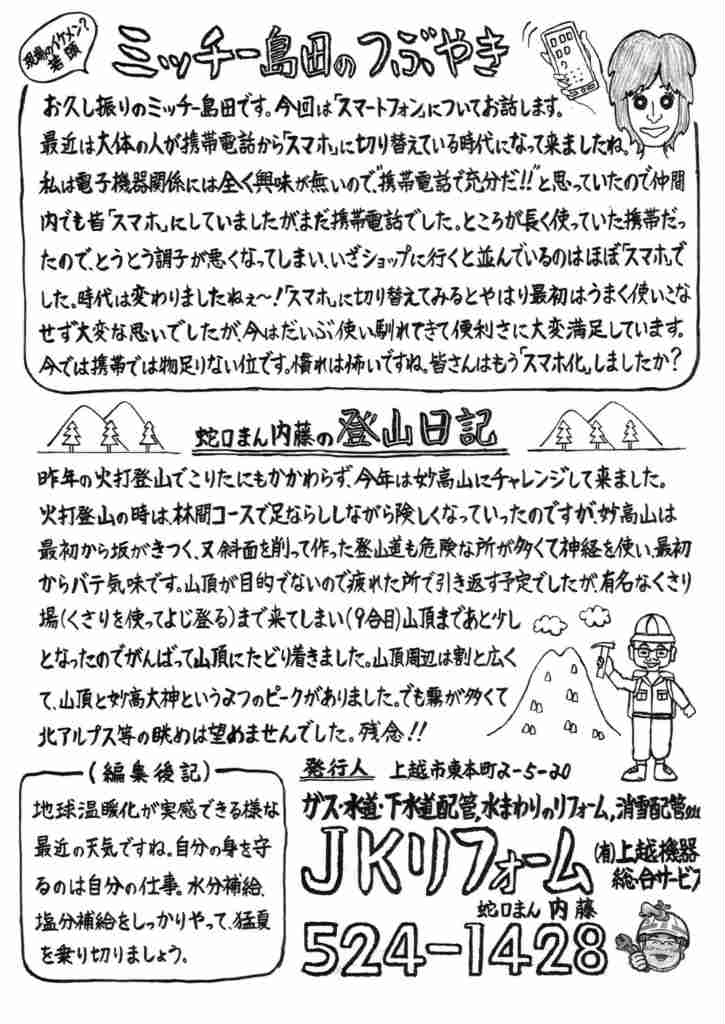 現場のイケメン?
若頭
ミッチー島田のつぶやき
お久し振りのミッチー島田です。今回は「スマートフォン」についてお話します。
最近は大体の人が携帯電話から「スマホ」に切り替えている時代になって来ましたね。
私は電子機器関係には全く興味が無いので“携帯電話で充分だ!!”と思っていたので仲間
内でも皆「スマホ」にしていましたがまだ携帯電話でした。ところが長く使っていた携帯だっ
たので、とうとう調子が悪くなってしまい、いざショップに行くと並んでいるのはほぼ「スマホ」で
した。時代は変わりましたねぇ〜!「スマホ」に切り替えてみるとやはり最初はうまく使いこな
せず大変な思いでしたが、今はだいぶ使い馴れてきて便利さに大変満足しています。
今では携帯では物足りない位です。慣れは怖いですね。皆さんはもう「スマホ化」しましたか?
蛇口まん内藤の登山日記
昨年の火打登山でこりたにもかかわらず、今年は妙高山にチャレンジして来ました。
火打登山の時は、林間コースで足ならししながら険しくなっていったのですが、妙高山は
最初から坂がきつく、又斜面を削って作った登山道も危険な所が多くて神経を使い、最初
からバテ気味です。山頂が目的でないので疲れた所で引き返す予定でしたが、有名なくさり
場(くさりを使ってよじ登る)まで来てしまい(9合目)山頂まであと少し
となったのでがんばって山頂にたどり着きました。山頂周辺は割と広く
て、山頂と妙高大神という2つのピークがありました。でも霧が多くて
北アルプス等の眺めは望めませんでした。残念!!
(編集後記)
地球温暖化が実感できる様な
最近の天気ですね。自分の身を守
るのは自分の仕事。水分補給、
塩分補給をしっかりやって、猛夏
を乗り切りましょう。
発行人 上越市東本町2-5-20
ガス・水道・下水道配管,水まわりのリフォーム,消雪配管etc
JKリフォーム
(有)上越機器
総合サービス
蛇口まん 内藤
524-1428